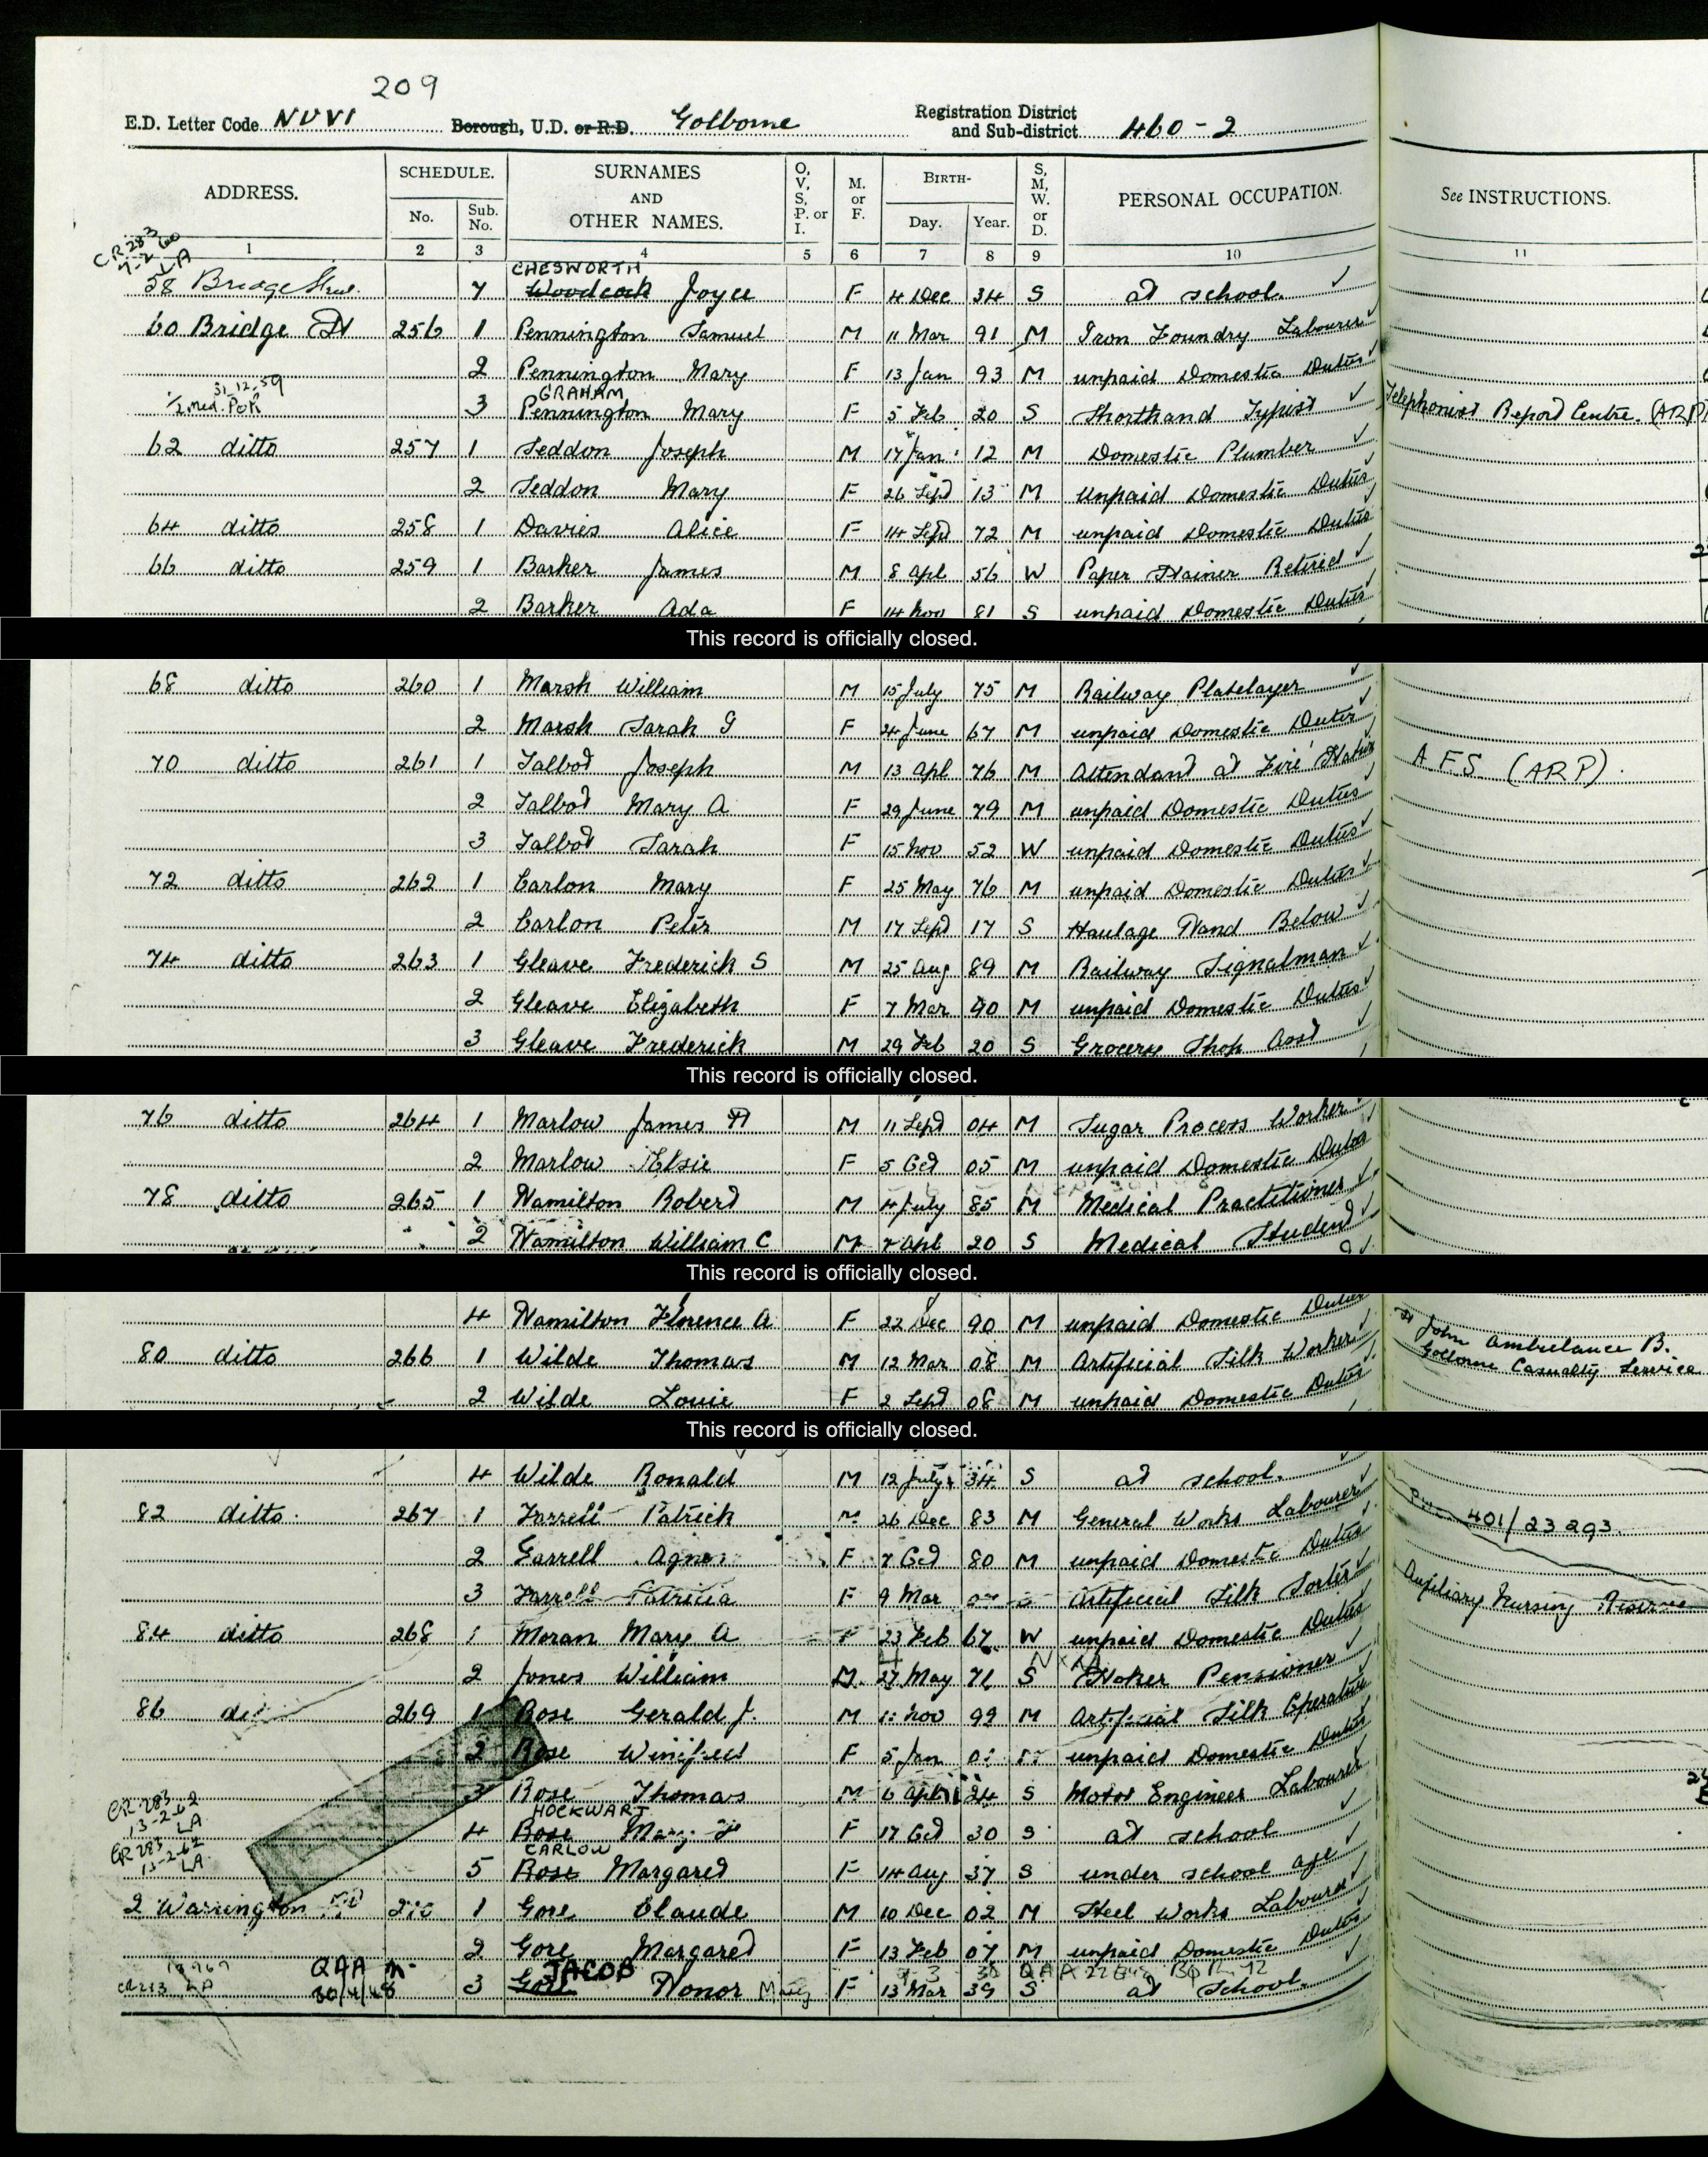 209
E.D. Letter Code NUVI Borough, U.D. or R.D. Golborne Registration District and Sub-district 460-2
ADDRESS. SCHEDULE. No. Sub. No. SURNAMES AND OTHER NAMES. O, V, S, P. or I. M. or F. BIRTH- Day. Year. S, M, W. or D. PERSONAL OCCUPATION. See INSTRUCTIONS.
1 2 3 4 5 6 7 8 9 10 11
CR 283
LA
CHESWORTH
58 Bridge Street 7 Woodcock Joyce F 4 Dec 34 S at school
60 Bridge St 256 1 Pennington Samuel M 11 Mar 91 M Iron Foundry Labourer
2 Pennington Mary F 13 Jan 93 M unpaid Domestic Duties
31.12.59
GRAHAM
3 Pennington Mary F 5 Feb 20 S Shorthand Typist Telephonist Report Centre. (ARP)
62 ditto 257 1 Seddon Joseph M 17 Jan 12 M Domestic Plumber
2 Seddon Mary F 26 Sept 13 M Unpaid Domestic Duties
64 ditto 258 1 Davies Alice F 14 Sept 72 M unpaid Domestic Duties
66 ditto 259 1 Barker James M 8 Apl 56 W Paper Stainer Retired
2 Barker Ada F 14 Nov 81 S unpaid Domestic Duties
This record is officially closed.
68 ditto 260 1 Marsh William M 15 July 75 M Railway Platelayer
2 Marsh Sarah G F 24 June 67 M unpaid Domestic Duties
70 ditto 261 1 Talbot Joseph M 13 Apl 76 M Attendant at Fire Station A.F.S. (ARP).
2 Talbot Mary A F 29 June 79 M unpaid Domestic Duties
3 Talbot Sarah F 15 Nov 52 W unpaid Domestic Duties
72 ditto 262 1 Carlon Mary F 25 May 76 M unpaid Domestic Duties
2 Carlon Peter M 17 Sept 17 S Haulage Hand Below
74 ditto 263 1 Gleave Frederick S M 25 Aug 89 M Railway Signalman
2 Gleave Elizabeth F 7 Mar 90 M unpaid Domestic Duties
3 Gleave Frederick M 29 Feb 20 S Grocery Shop Asst
This record is officially closed.
76 ditto 264 1 Marlow James H M 11 Sept 04 M Sugar Process Worker
2 Marlow Elsie F 5 Oct 05 M unpaid Domestic Duties
78 ditto 265 1 Hamilton Robert M 4 July 85 M Medical Practitioner
2 Hamilton William C M 7 Apl 20 S Medical Student
This record is officially closed.
4 Hamilton Florence A F 22 Dec 90 M unpaid Domestic Duties St John Ambulance B.
80 ditto 266 1 Wilde Thomas M 12 Mar 08 M Artificial Silk Worker Golborne Casualty Service
2 Wilde Louie F 2 Sept 08 M unpaid Domestic Duties
This record is officially closed.
4 Wilde Ronald M 12 July 34 S at school
82 ditto 267 1 Farrell Patrick M 26 Dec 83 M General Works Labourer 401/23293
2 Farrell Agnes F 7 Oct 80 M unpaid Domestic Duties
3 Farrell Patricia F 9 Mar Artificial Silk Sorter Auxiliary Nursing Reserve
84 ditto 268 1 Moran Mary A F 23 Feb 67 W unpaid Domestic Duties
2 Jones William M 27 May 71 S Stoker Pensioner
86 269 1 Rose Gerald J. M 11 Nov 99 M Artificial Silk Operative
2 Rose Winifred F 5 Jan M unpaid Domestic Duties
3 Rose Thomas M 6 Apl 24 S Motor Engineer Labourer
CR 283 13-2-62 LA
HOCKWART
4 Rose Mary F 17 Oct 30 S at school
CR 283 13-2-62 LA
CARLOW
5 Rose Margaret F 14 Aug 37 S under school age
2 Warrington Rd 270 1 Gore Claude M 10 Dec 02 M Steel Works Labourer
2 Gore Margaret F 13 Feb 07 M unpaid Domestic Duties
CR283 LA QAA 30/4/48
JACOB
3 Gore Honor F 13 Mar 34 S at school